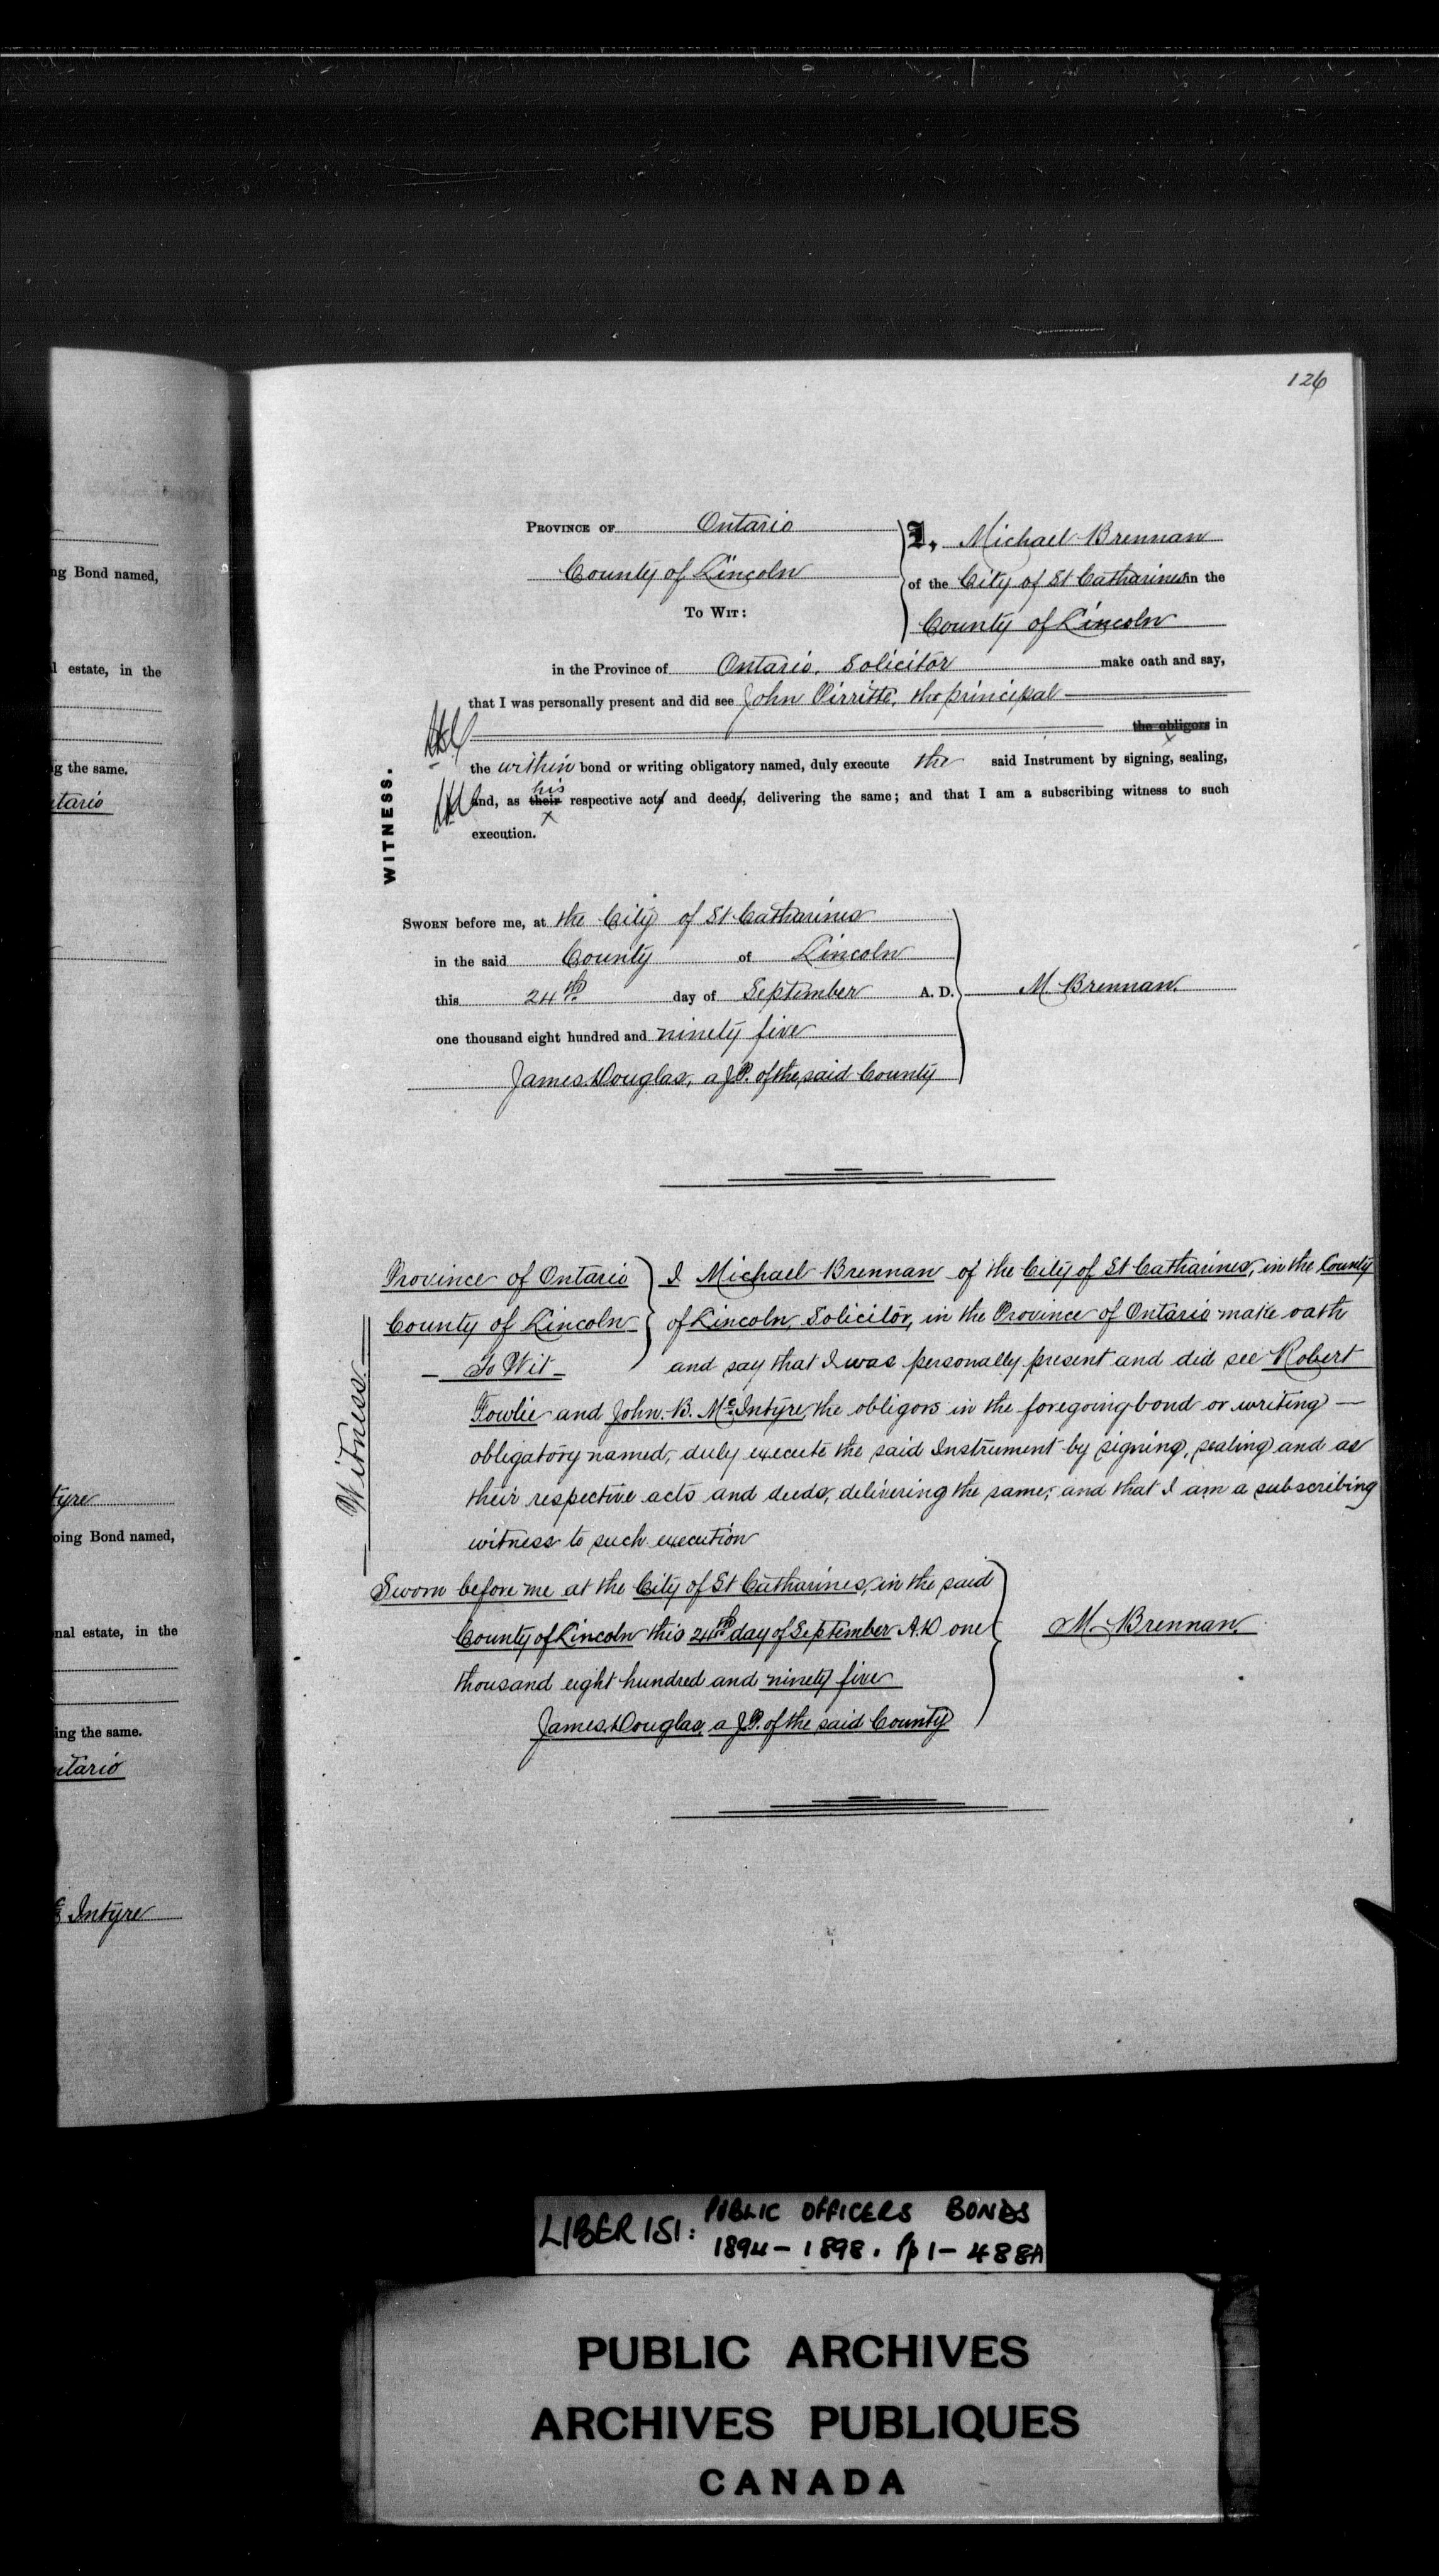 126
ng Bond named,
l estate, in the
g the same.
ntario
tyre
oing Bond named,
nal estate, in the
ing the same.
ntario
c Intyre
PROVINCE OF Ontario
County of Lincoln
TO WIT:
I, Michael Brennan
of the City of St Catharines in the
County of Lincoln
in the Province of Ontario, Solicitor make oath and say,
that I was personally present and did see John Pirritte, the principal
the obligors in
the within bond or writing obligatory named, duly execute the said Instrument by signing, sealing,
his
and, as their respective acts and deeds, delivering the same; and that I am a subscribing witness to such
execution.
WITNESS.
SWORN before me, at the City of St Catharines
in the said County of Lincoln
this 24th day of September A. D.
one thousand eight hundred and ninety five
James Douglas, a J.P. of the said County
M. Brennan
Province of Ontario
County of Lincoln
To Wit
I Michael Brennan of the City of St Catharines, in the County
of Lincoln, Solicitor, in the Province of Ontario make oath
and say that I was personally present and did see Robert
Fowlie and John. B. McIntyre, the obligors in the foregoing bond or writing —
obligatory named, duly execute the said Instrument by signing, sealing and as
their respective acts and deeds, delivering the same; and that I am a subscribing
witness to such execution
Witness
Sworn before me at the City of St Catharines, in the said
County of Lincoln this 24th day of September A.D one
thousand eight hundred and ninety five
James Douglas, a J.P. of the said County
M. Brennan
LIBER 151: PUBLIC OFFICERS BONDS
1894-1898. pp 1-488A
PUBLIC ARCHIVES
ARCHIVES PUBLIQUES
CANADA